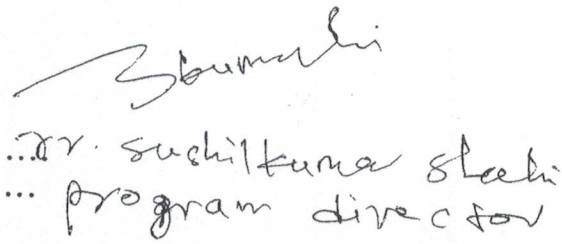 ...Dr. Sushilkumar Shahi
... program director